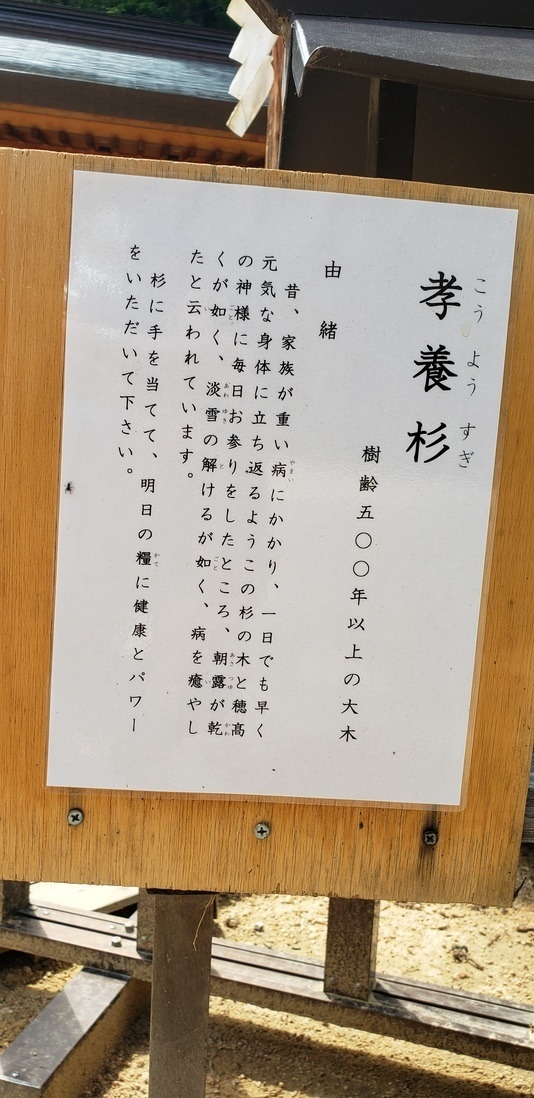 こうようすぎ
孝養杉
樹齢五〇〇年以上の大木
由緒
昔、家族が重い病にかかり、一日でも早く
元気な身体に立ち返るようこの杉の木と穂高
の神様に毎日お参りをしたところ、朝露が乾
くが如く、淡雪の解けるが如く、病を癒やし
たと云われています。
杉に手を当てて、明日の糧に健康とパワー
をいただいて下さい。